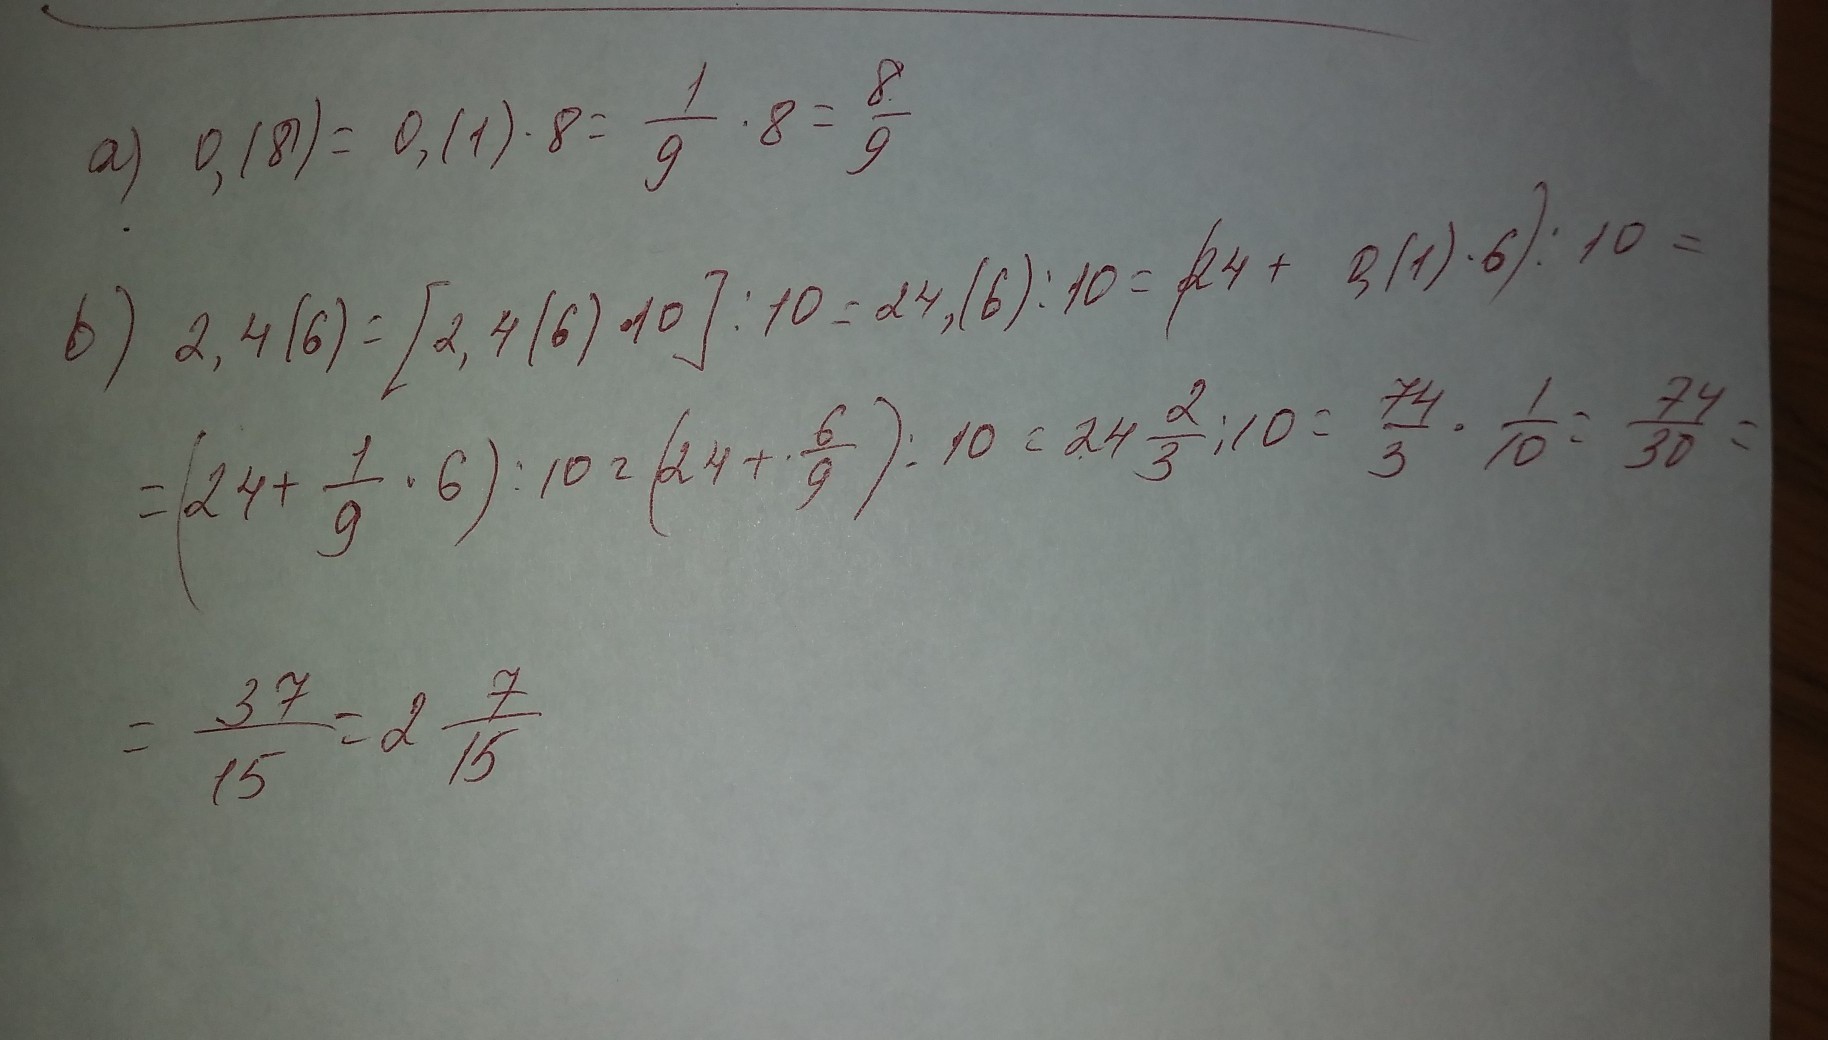 a) 0,(8) = 0,(1) · 8 = 1/9 · 8 = 8/9
b) 2,4(6) = [2,4(6) · 10] : 10 = 24,(6) : 10 = (24 + 0,(1) · 6) : 10 =
= (24 + 1/9 · 6) : 10 = (24 + 6/9) : 10 = 24 2/3 : 10 = 74/3 · 1/10 = 74/30 =
= 37/15 = 2 7/15